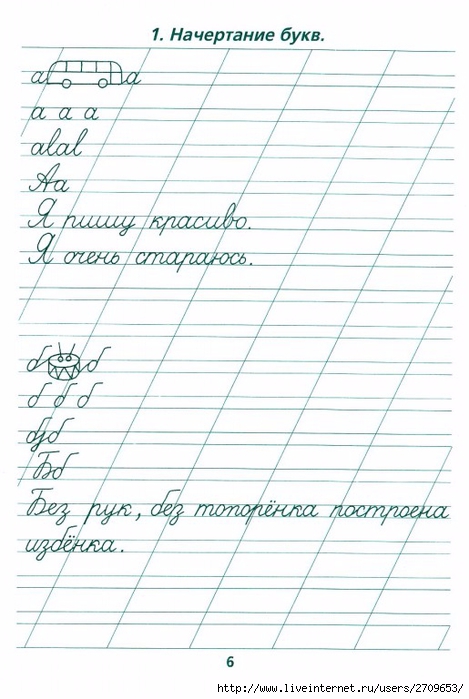 1. Начертание букв.
а а
а а а
аɑаɑ
Аа
Я пишу красиво.
Я очень стараюсь.
б б
б б б
Бб
Без рук, без топорёнка построена
избёнка.
6
http://www.liveinternet.ru/users/2709653/